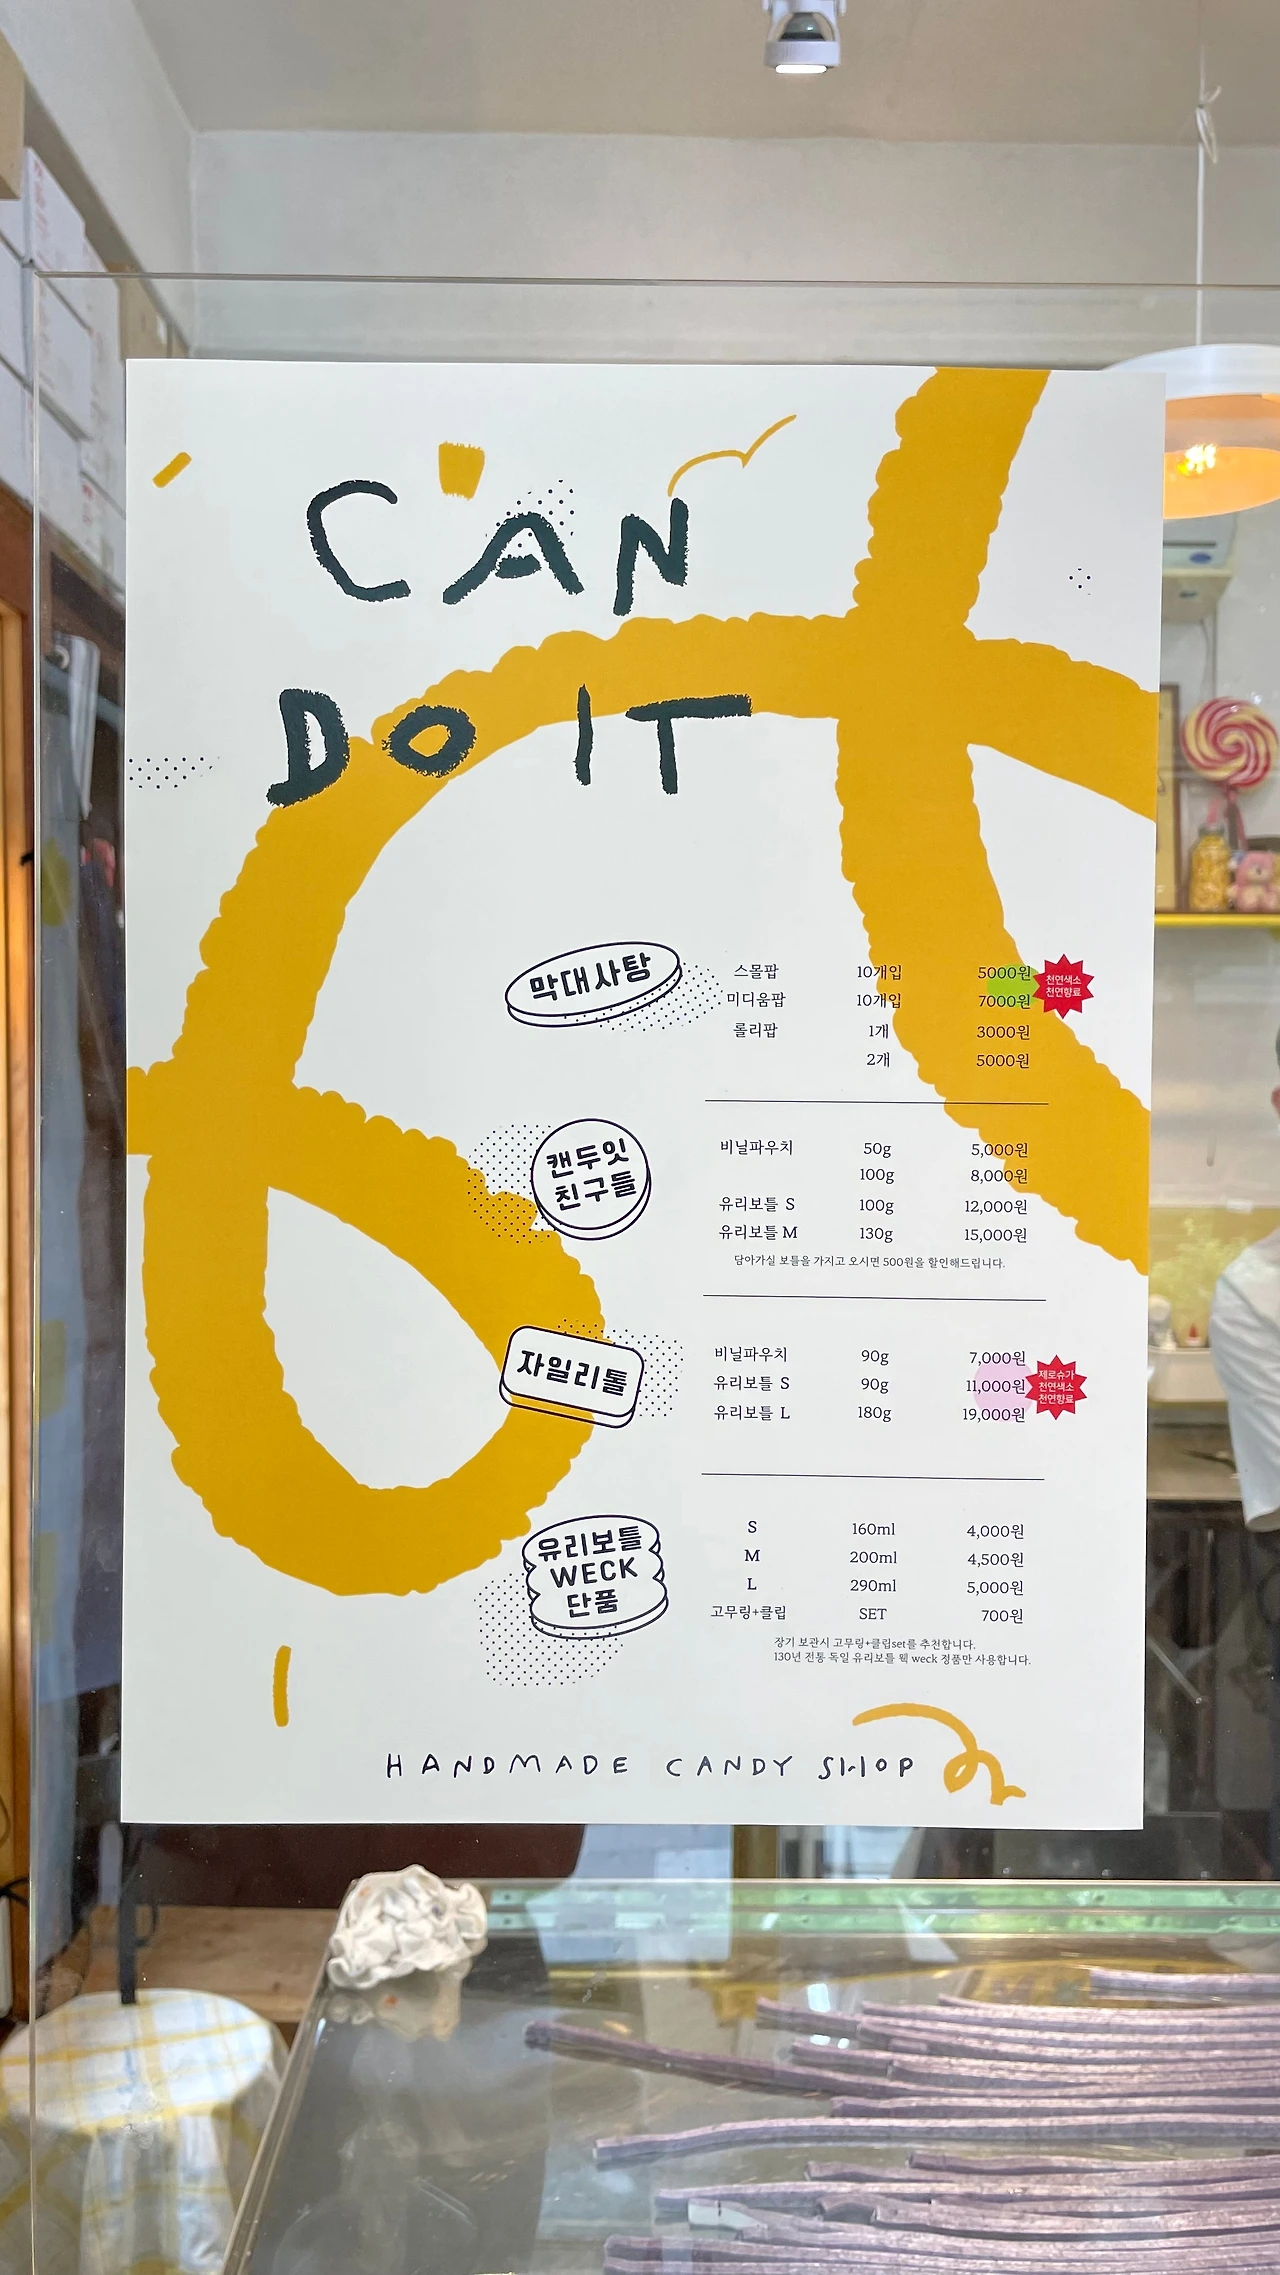 CAN
DO IT
막대사탕
스몰팝 10개입 5000원
미디움팝 10개입 7000원
롤리팝 1개 3000원
2개 5000원
천연색소
천연향료
캔두잇
친구들
비닐파우치 50g 5,000원
100g 8,000원
유리보틀 S 100g 12,000원
유리보틀 M 130g 15,000원
담아가실 보틀을 가지고 오시면 500원을 할인해드립니다.
자일리톨
비닐파우치 90g 7,000원
유리보틀 S 90g 11,000원
유리보틀 L 180g 19,000원
제로슈가
천연색소
천연향료
유리보틀
WECK
단품
S 160ml 4,000원
M 200ml 4,500원
L 290ml 5,000원
고무링+클립 SET 700원
장기 보관시 고무링+클립set를 추천합니다.
130년 전통 독일 유리보틀 웩 weck 정품만 사용합니다.
HANDMADE CANDY SHOP